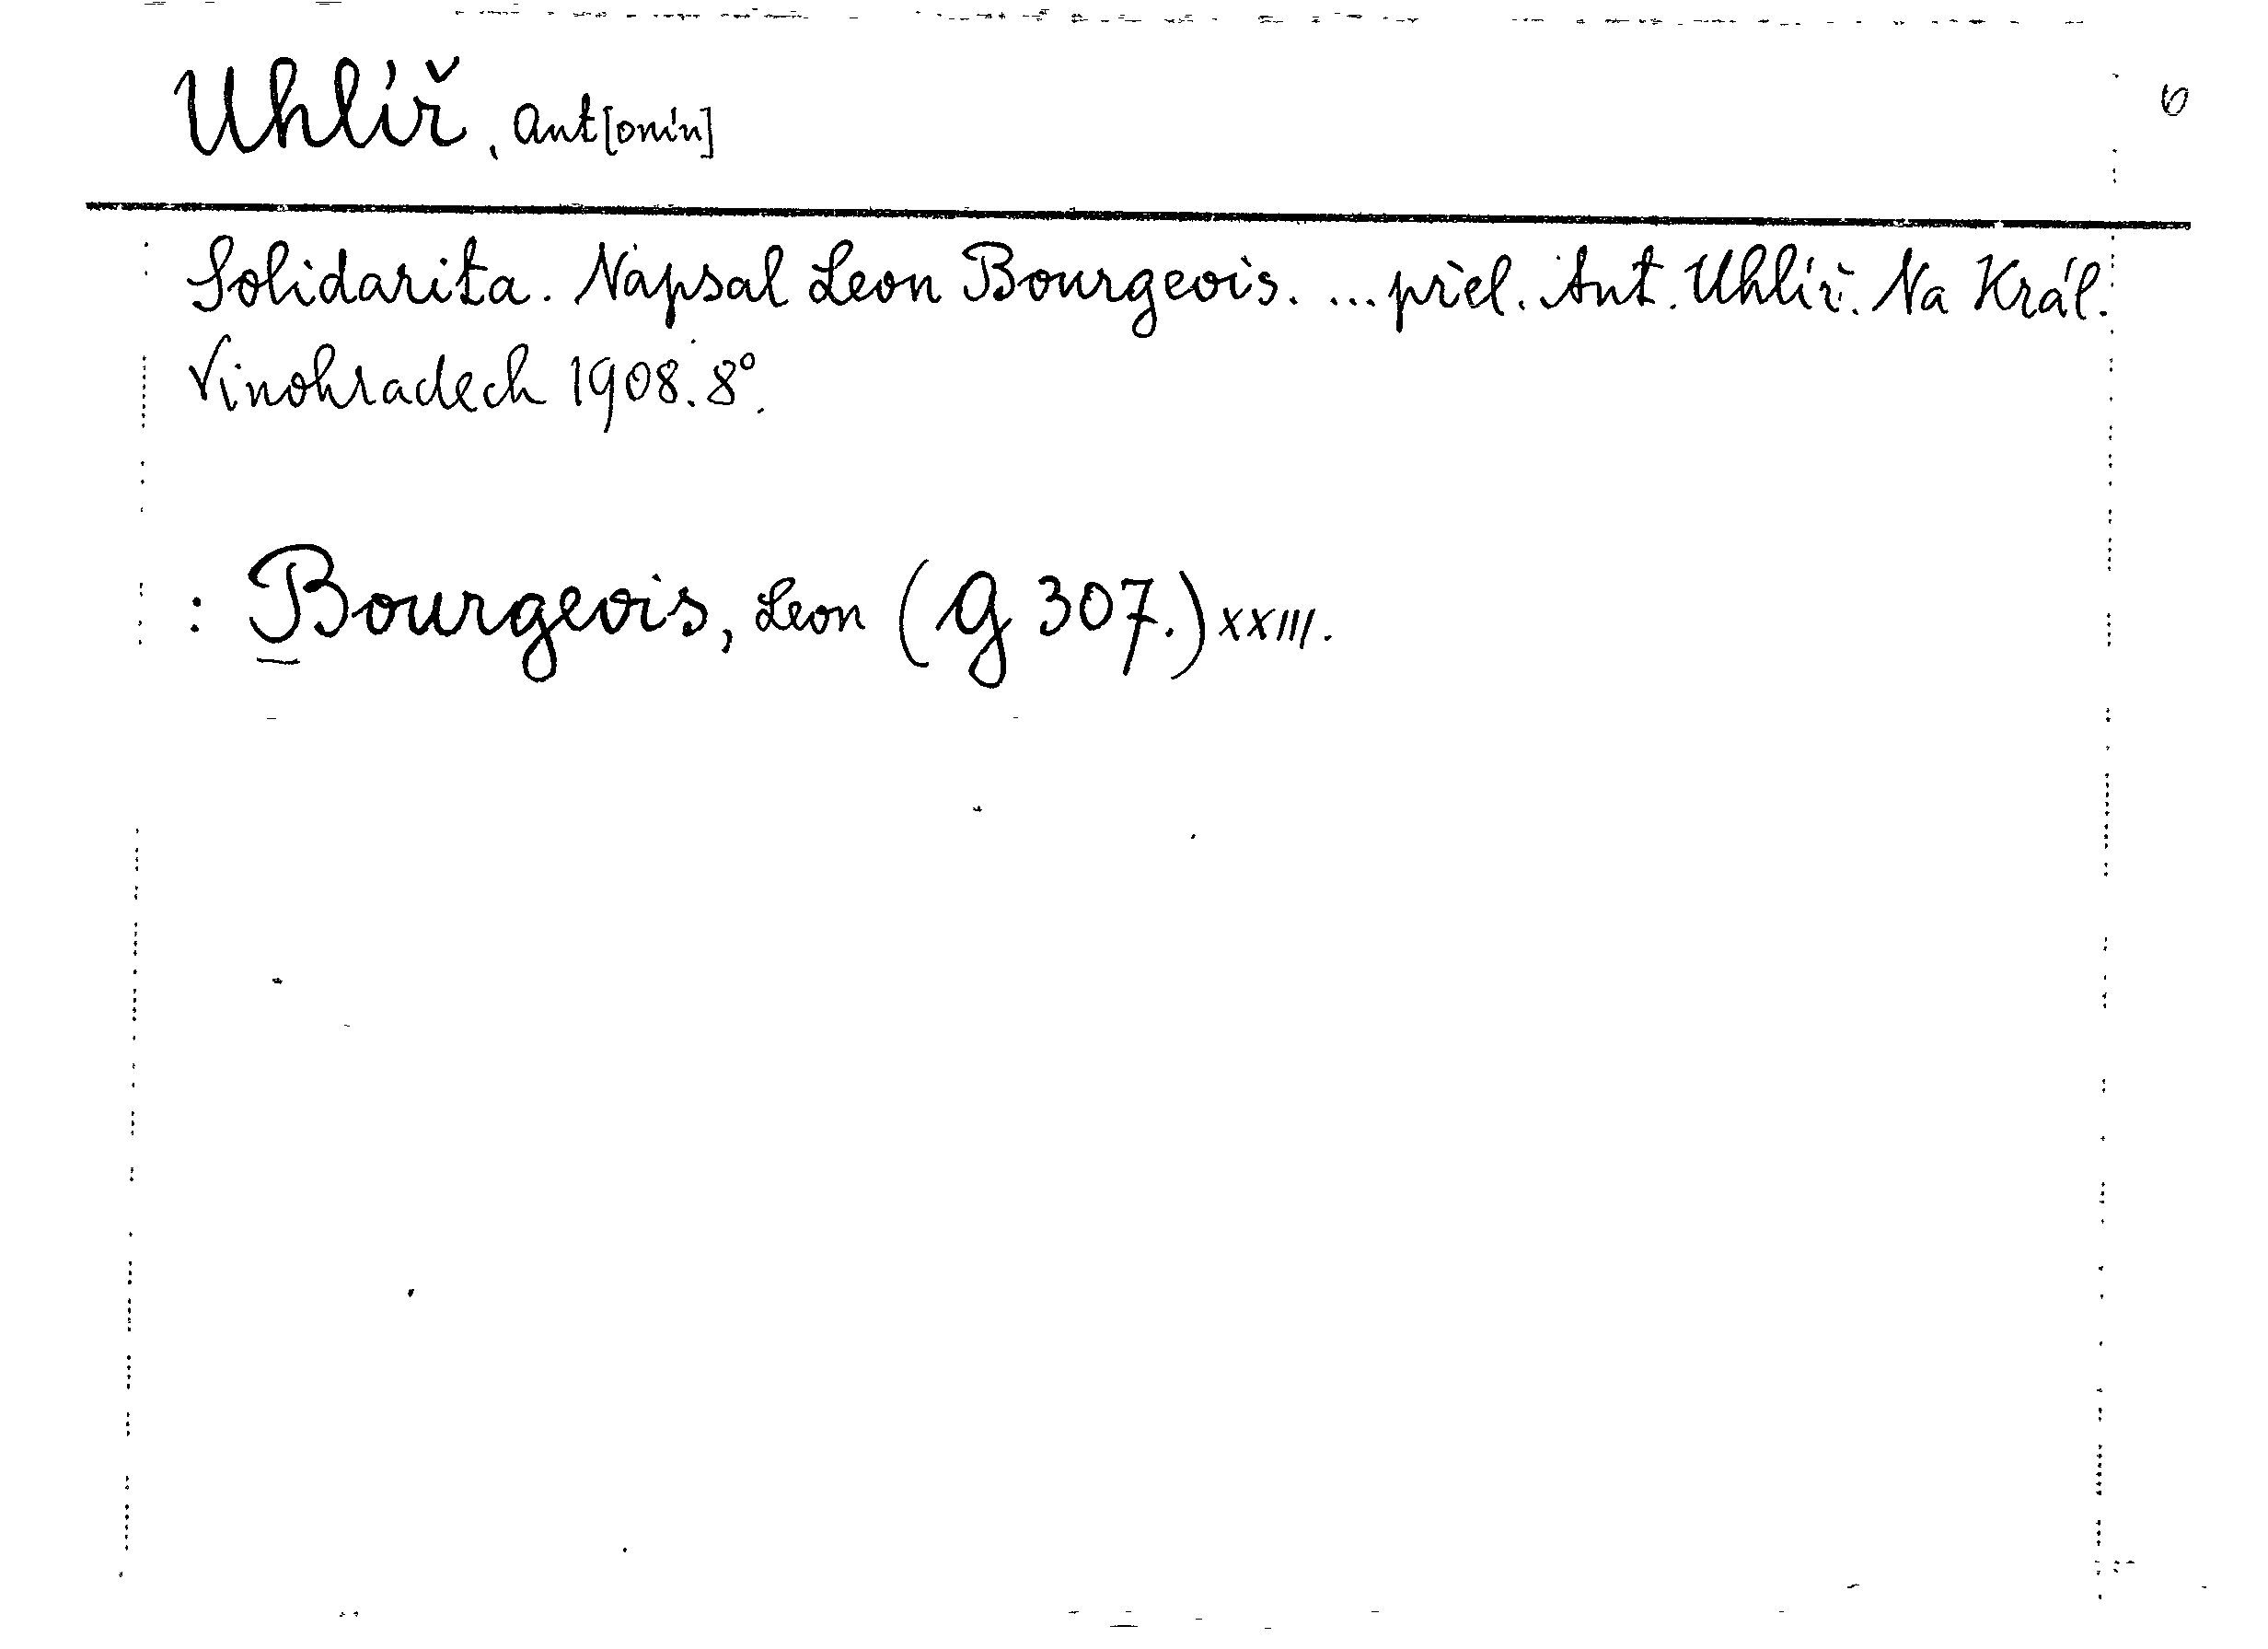 Uhlíř, Ant[onín]
Solidarita. Napsal Leon Bourgeois. ... přel. Ant. Uhlíř. Na Král.
Vinohradech 1908. 8°.
: Bourgeois, Leon (G 307.) XXIII.